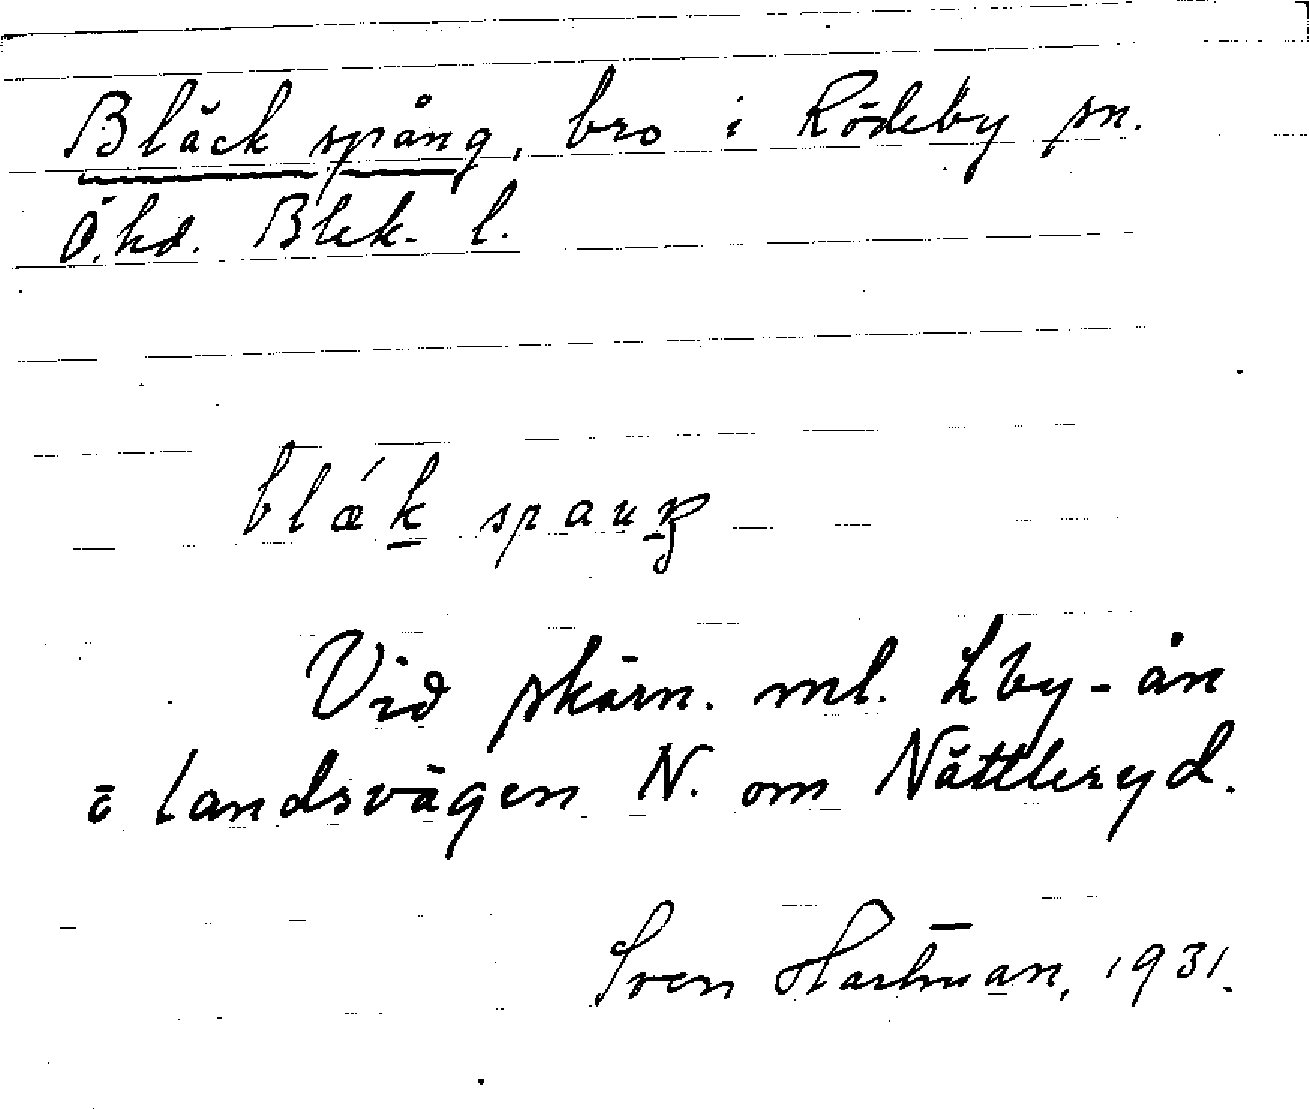 Bläck spång, bro i Rödeby sn.
Ö. hd. Blek. l.
blǽk spauŋ
Vid skärn. ml. Lby-ån
o landsvägen N. om Nättleryd.
Sven Hartman, 1931.